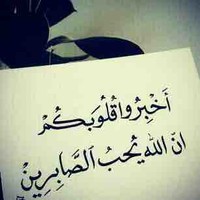 أَخْبِرُوا قُلُوبَكُمْ
انّ الله يُحبُ الصَّابِرِينْ